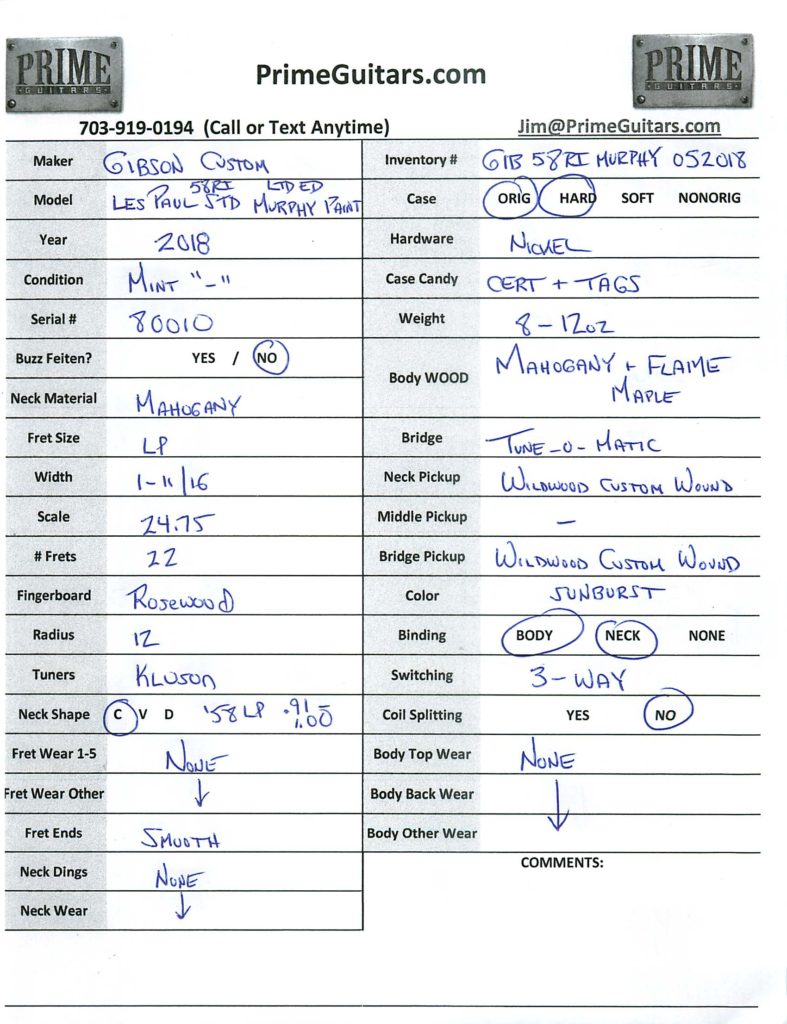 PRIME
GUITARS
PrimeGuitars.com
PRIME
GUITARS
703-919-0194 (Call or Text Anytime)
Jim@PrimeGuitars.com
Maker GIBSON CUSTOM
Model LES PAUL 58RI STD LTD ED MURPHY PAINT
Year 2018
Condition MINT "-"
Serial # 80010
Buzz Feiten? YES / NO
Neck Material MAHOGANY
Fret Size LP
Width 1-11/16
Scale 24.75
# Frets 22
Fingerboard ROSEWOOD
Radius 12
Tuners KLUSON
Neck Shape C V D '58 LP .91-1.00
Fret Wear 1-5 NONE
Fret Wear Other ↓
Fret Ends SMOOTH
Neck Dings NONE
Neck Wear ↓
Inventory # GIB 58RI MURPHY 052018
Case ORIG HARD SOFT NONORIG
Hardware NICKEL
Case Candy CERT + TAGS
Weight 8-12oz
Body WOOD MAHOGANY + FLAME
MAPLE
Bridge TUNE-O-MATIC
Neck Pickup WILDWOOD CUSTOM WOUND
Middle Pickup —
Bridge Pickup WILDWOOD CUSTOM WOUND
Color SUNBURST
Binding BODY NECK NONE
Switching 3-WAY
Coil Splitting YES NO
Body Top Wear NONE
Body Back Wear ↓
Body Other Wear
COMMENTS: